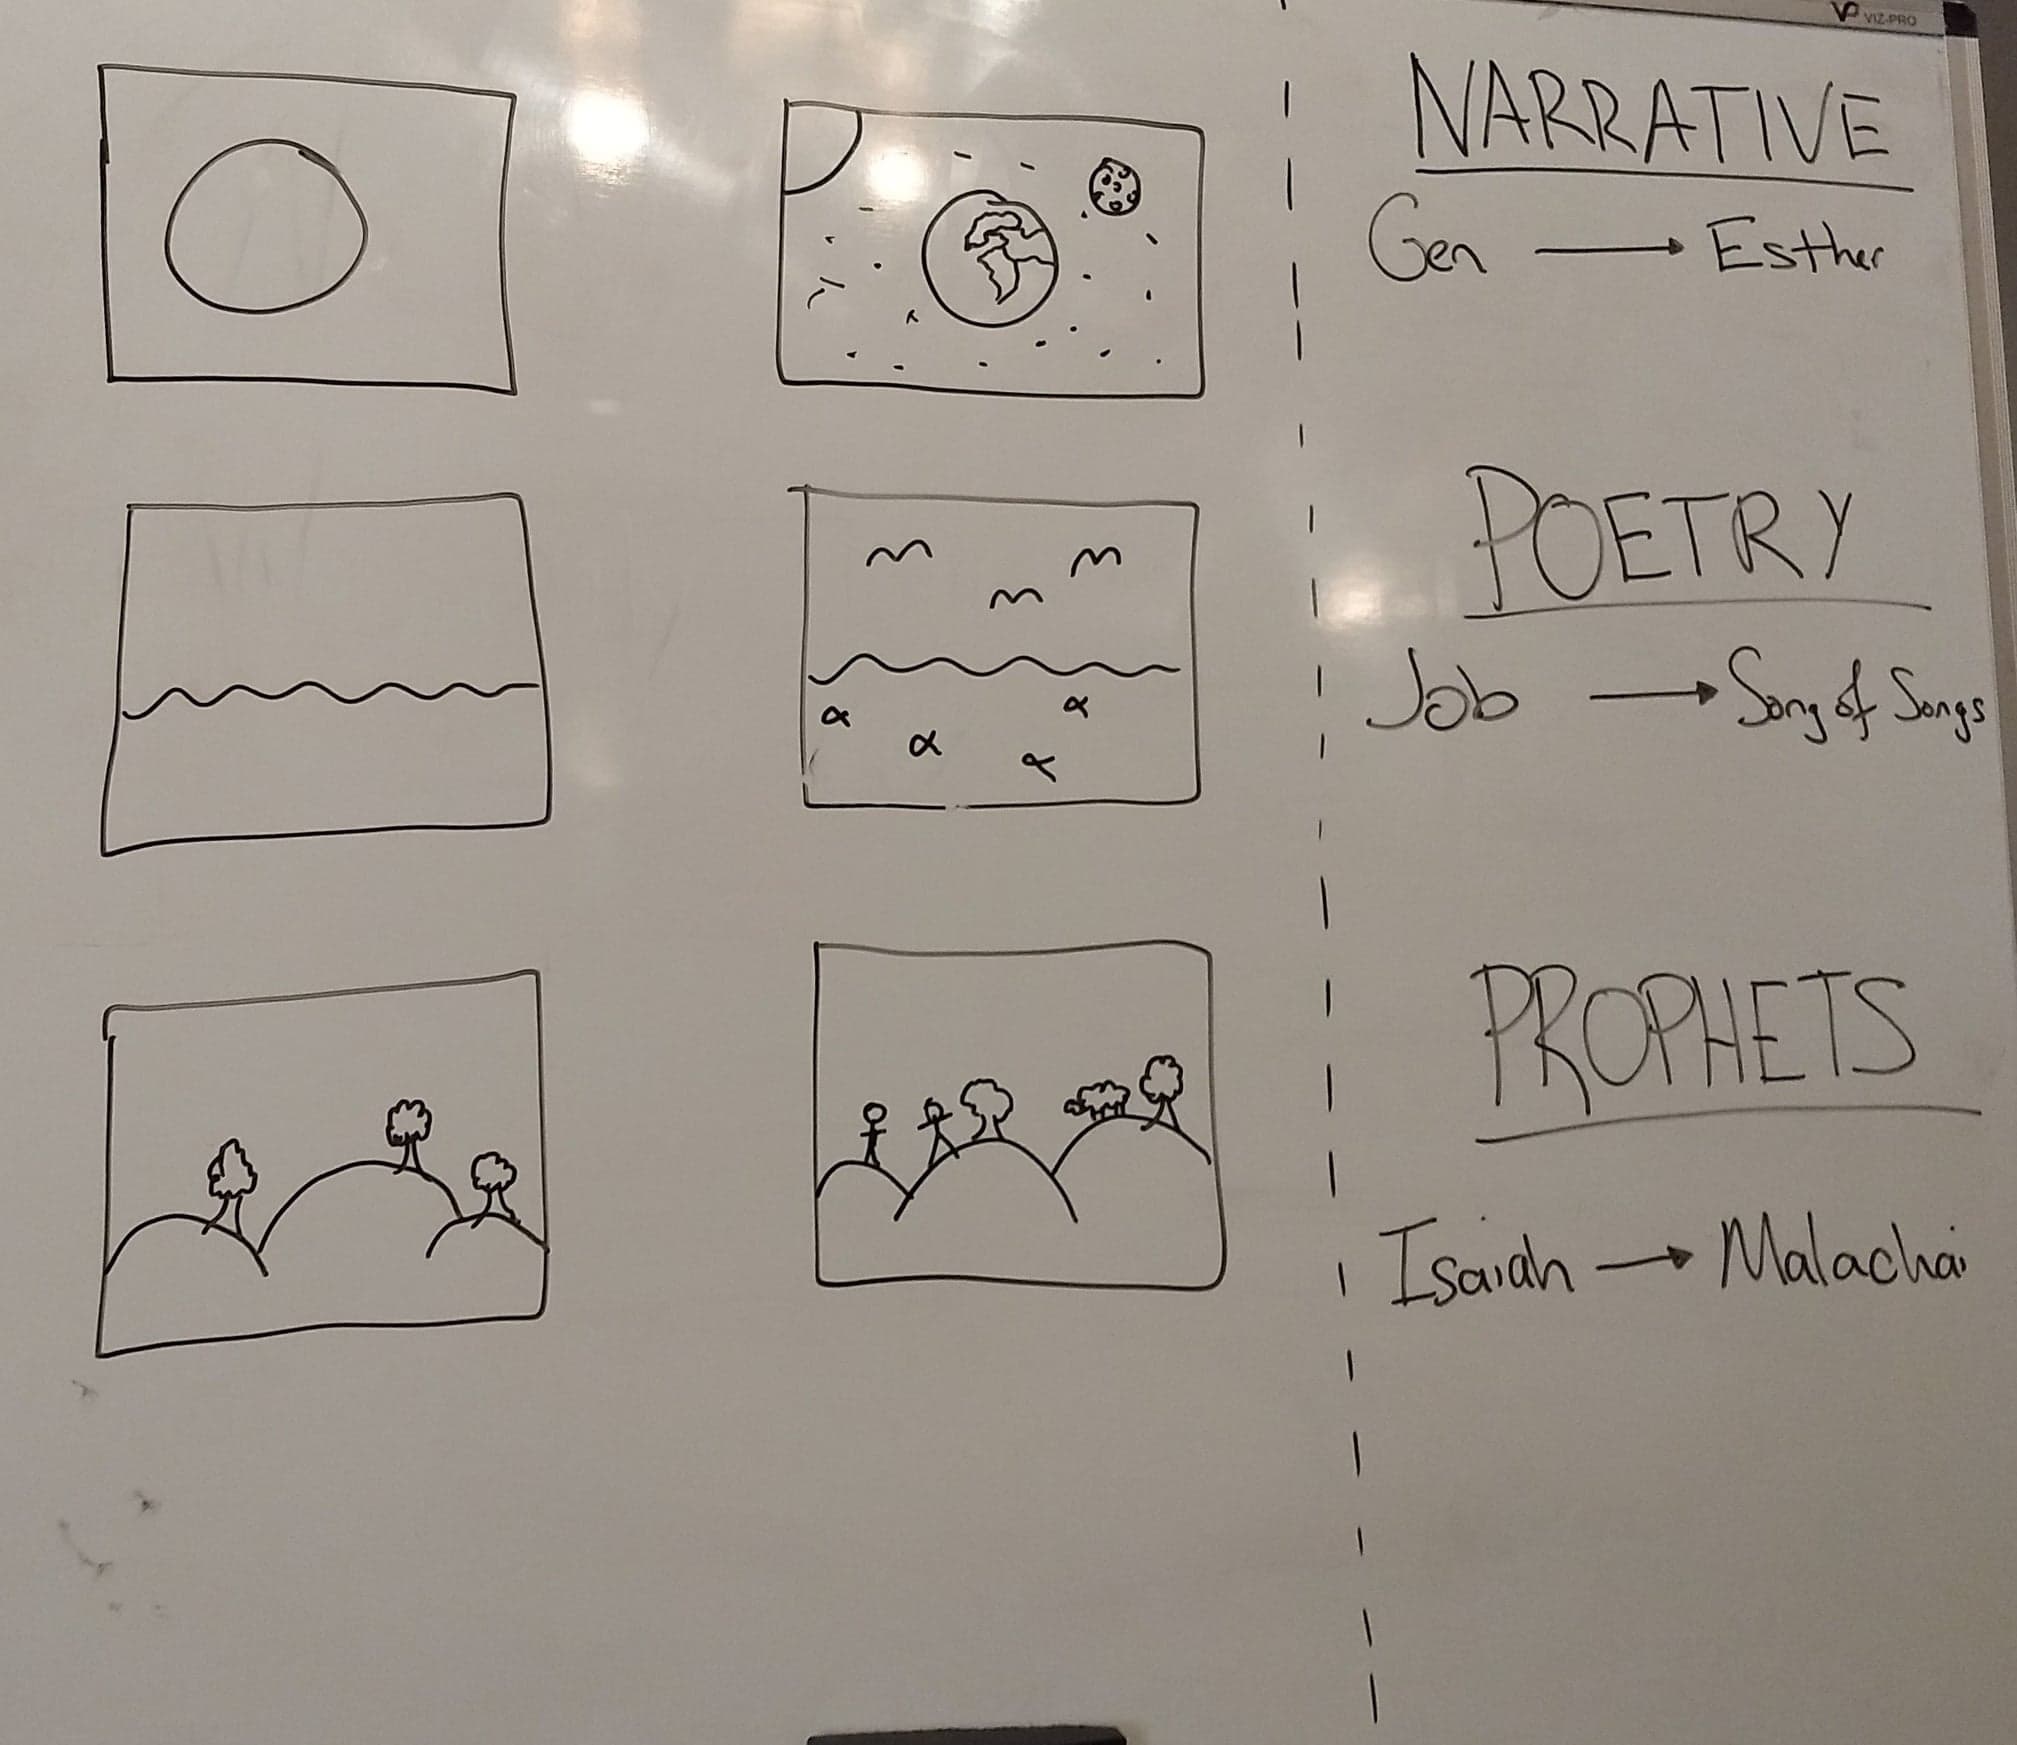 VIZ-PRO
NARRATIVE
Gen → Esther
POETRY
Job → Song of Songs
PROPHETS
Isaiah → Malachai